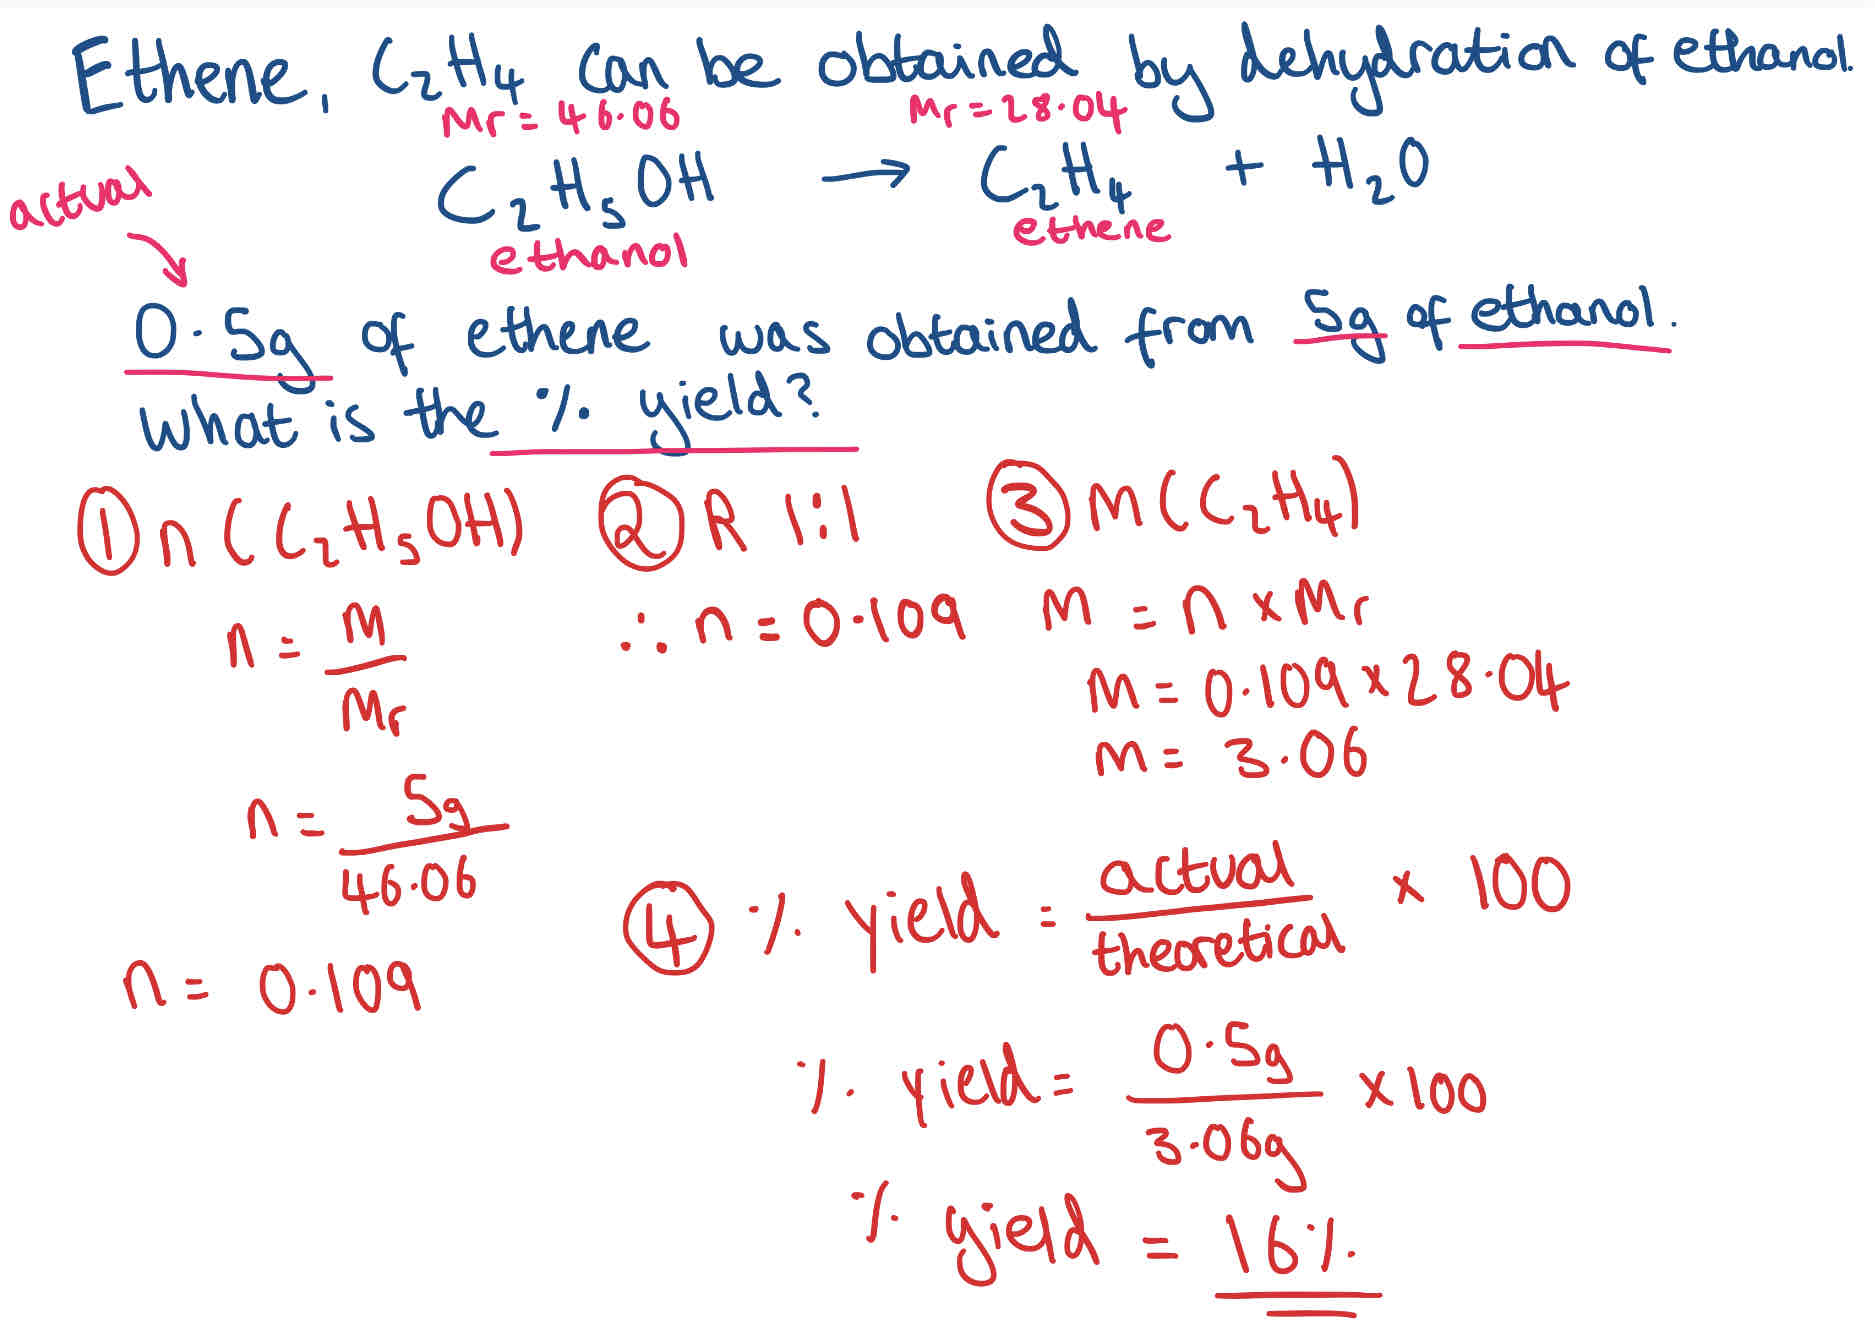 Ethene, C₂H₄ can be obtained by dehydration of ethanol.
Mr = 46.06
Mr = 28.04
C₂H₅OH → C₂H₄ + H₂O
ethanol
ethene
actual
0.5g of ethene was obtained from 5g of ethanol.
What is the % yield?
① n (C₂H₅OH)
n = M/Mr
n = 5g/46.06
n = 0.109
② R 1:1
∴ n = 0.109
③ M (C₂H₄)
M = n × Mr
M = 0.109 × 28.04
m = 3.06
④ % yield = actual/theoretical × 100
% yield = 0.5g/3.06g × 100
% yield = 16%